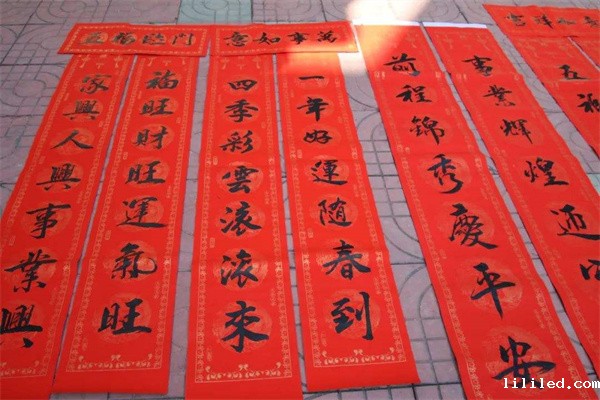 五福臨門
萬事如意
家興人興事業興
福旺財旺運氣旺
四季彩雲滾滾來
一年好運隨春到
前程錦秀慶平安
事業輝煌迎
五福
lililed.com